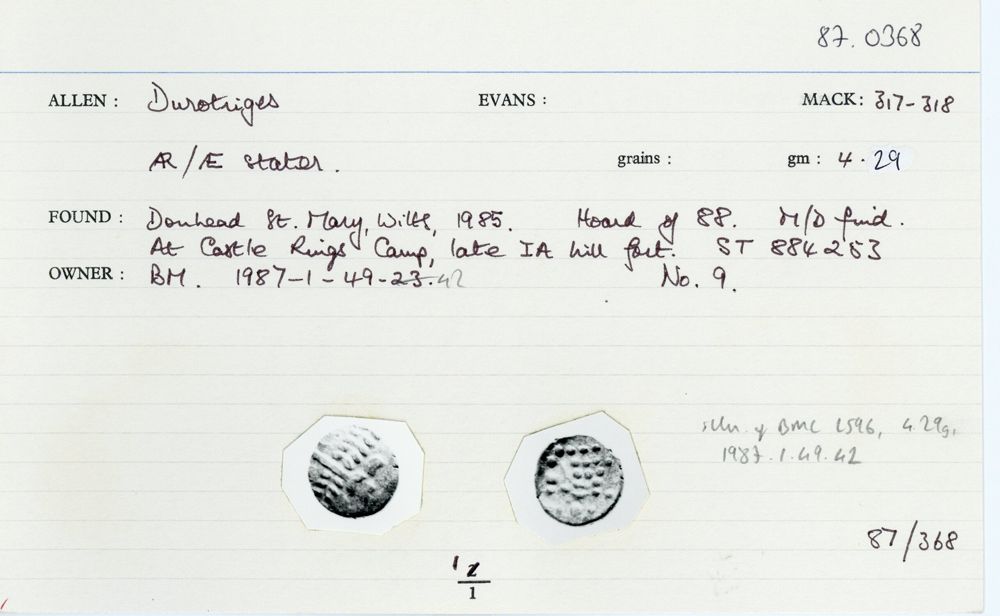 87.0368
ALLEN : Durotriges EVANS : MACK: 317-318
AR/Æ stater. grains : gm : 4.29
FOUND : Donhead St. Mary, Wilts, 1985. Hoard of 88. M/D find.
At Castle Rings Camp, late IA hill fort. ST 884253
OWNER : BM. 1987-1-49-23.42 No. 9.
illn. of BMC 2596, 4.29g,
1987.1.49.42
87/368
1
1